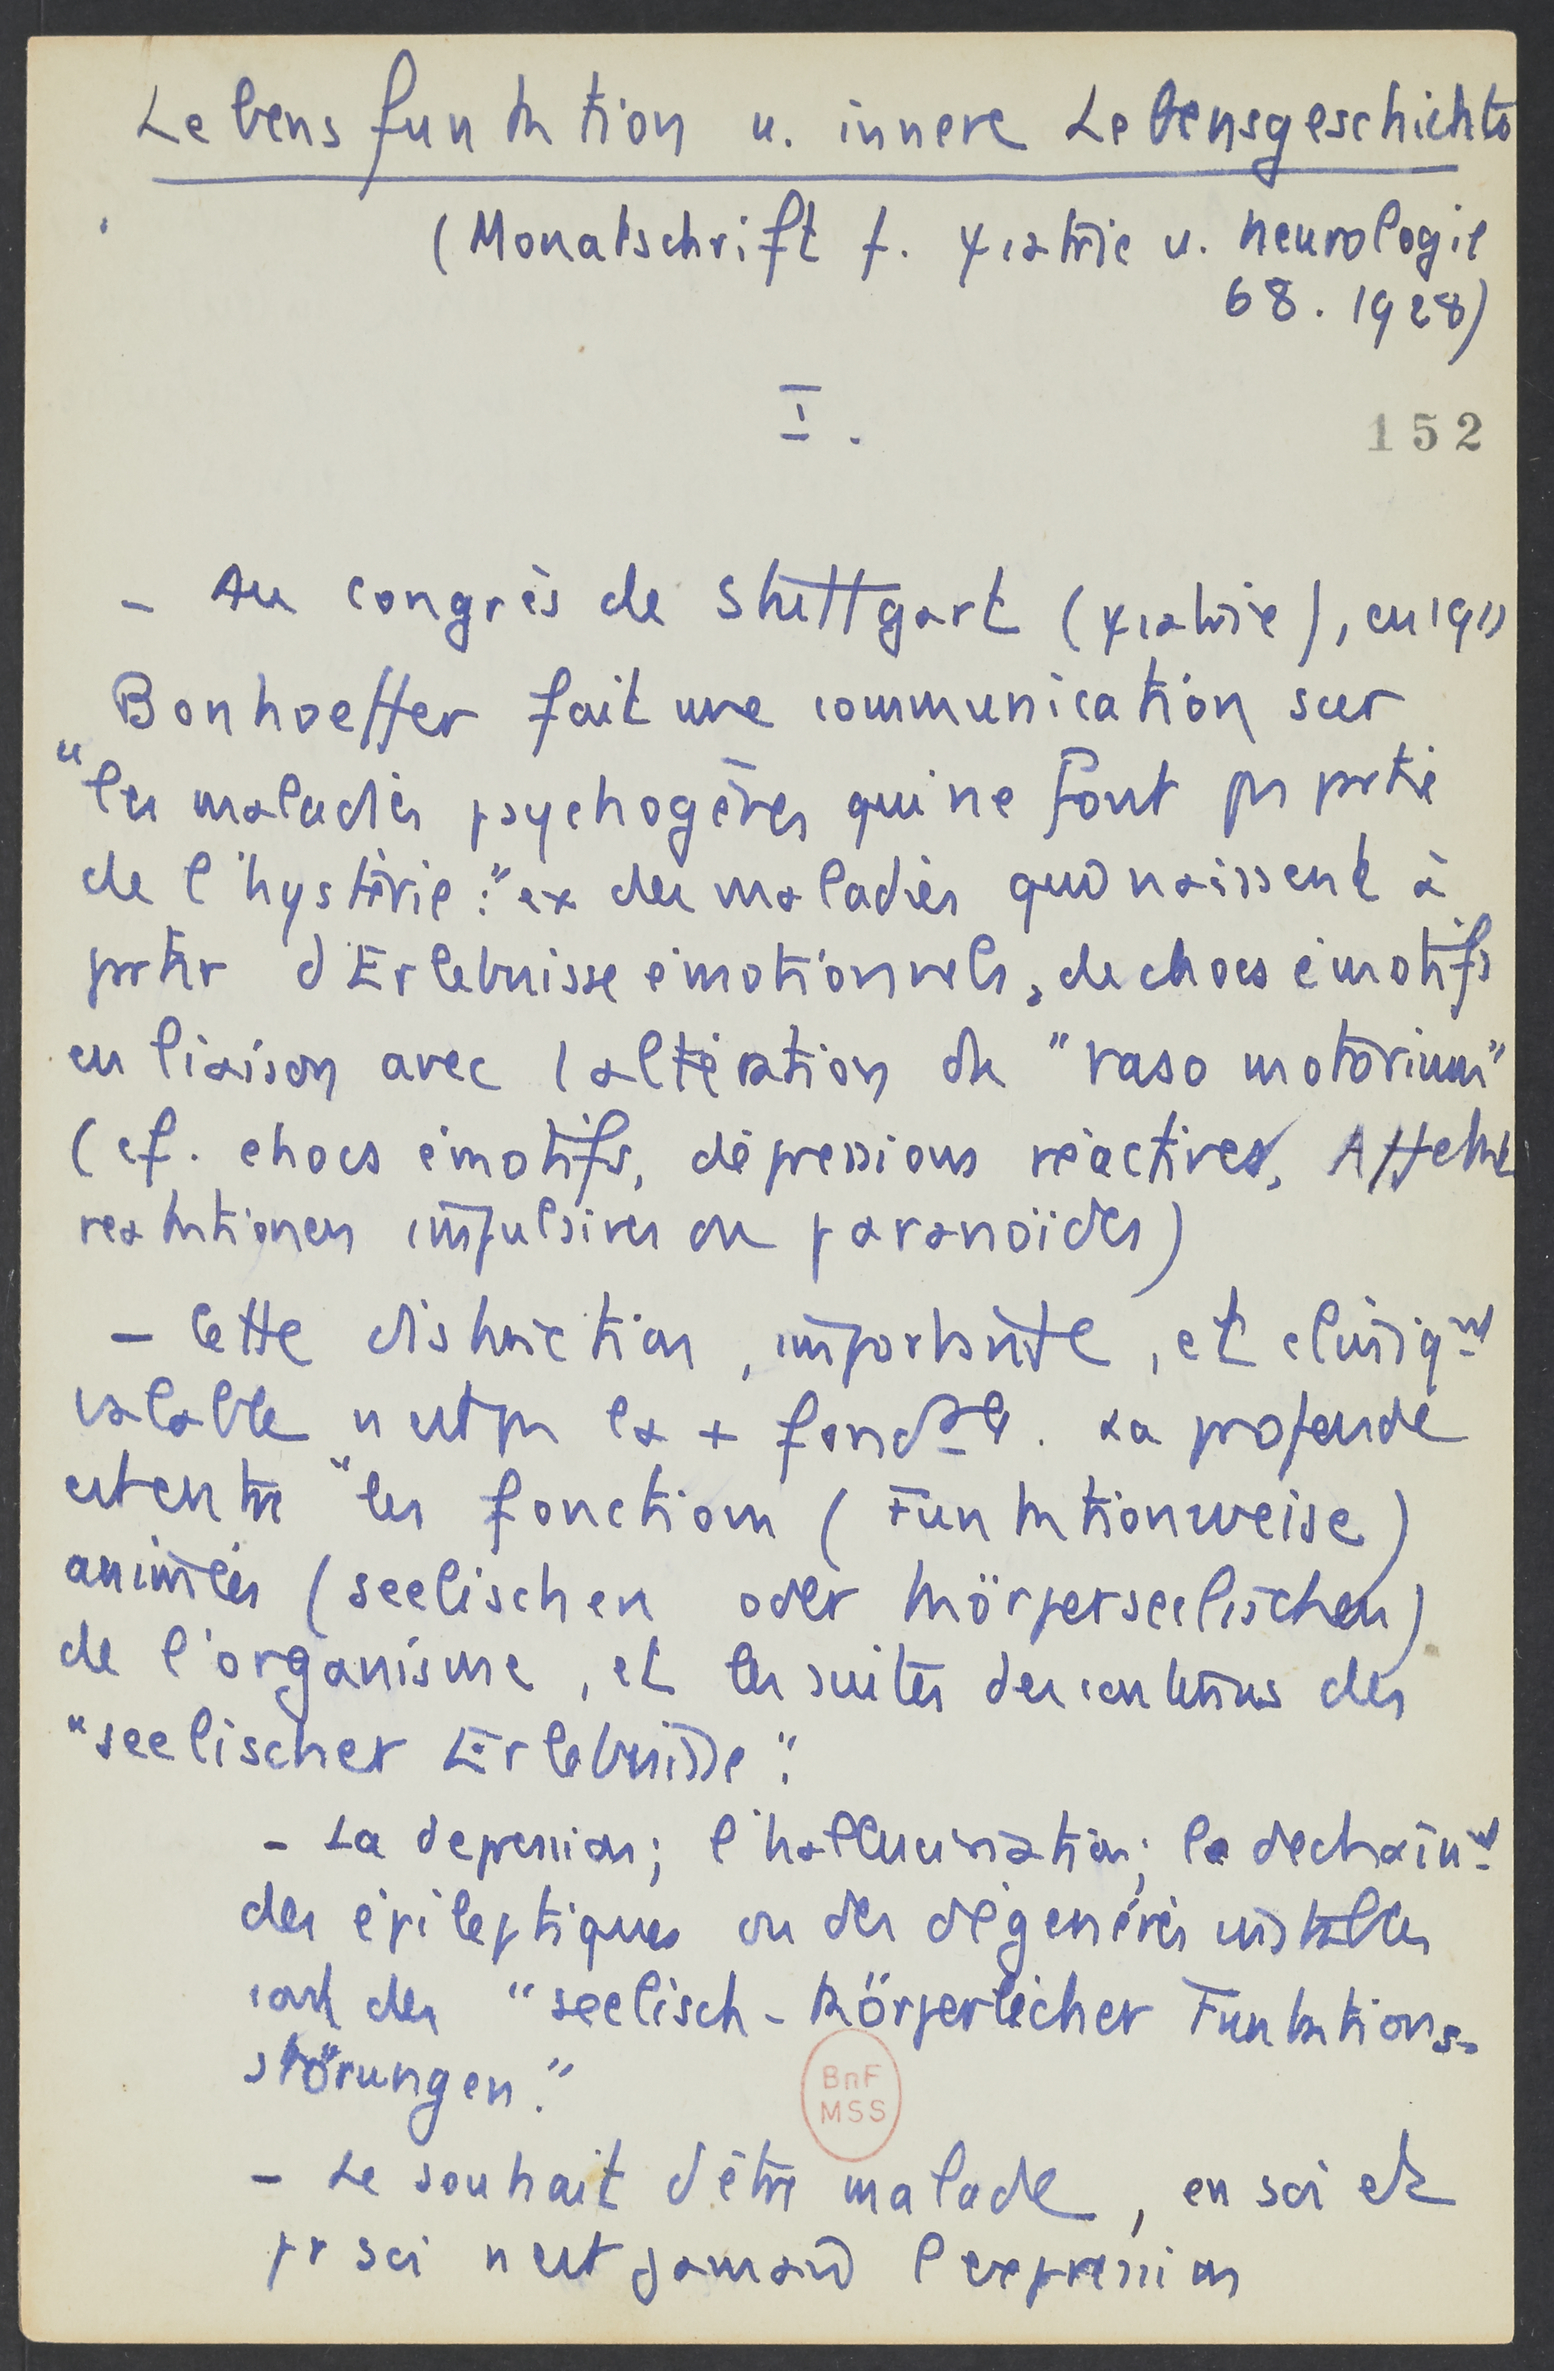 Lebensfunktion u. innere Lebensgeschichte
(Monatschrift f. ψiatrie u. Neurologie
68. 1928)
I.
152
- Au congrès de Stuttgart (ψiatrie), en 1911
Bonhoeffer fait une communication sur
"les maladies psychogènes qui ne font ps prtie
de l'hystérie:" ex des maladies qui naissent à
prtir d'Erlebnisse émotionnels, de chocs émotifs
en liaison avec l altération du "vaso motorium"
(cf. chocs émotifs, dépressions réactives, Affekt
reaktionen impulsives ou paranoïdes)
- Cette distinction, importante, et cliniqt
valable n'est ps la + fondale. La profonde
est entre "les fonctions (Funktionweise)
animées (seelischen oder körperseelischen)
de l'organisme, et les suites des contenus des
"seelischer Erlebnisse".
- La depression; l'hallucination; le dechaînt
des épileptiques ou des dégénérés instables
sont des "seelisch-körperlicher Funktions-
störungen."
BnF
MSS
- Le souhait d'être malade, en soi et
pr soi n'est jamais l'expression